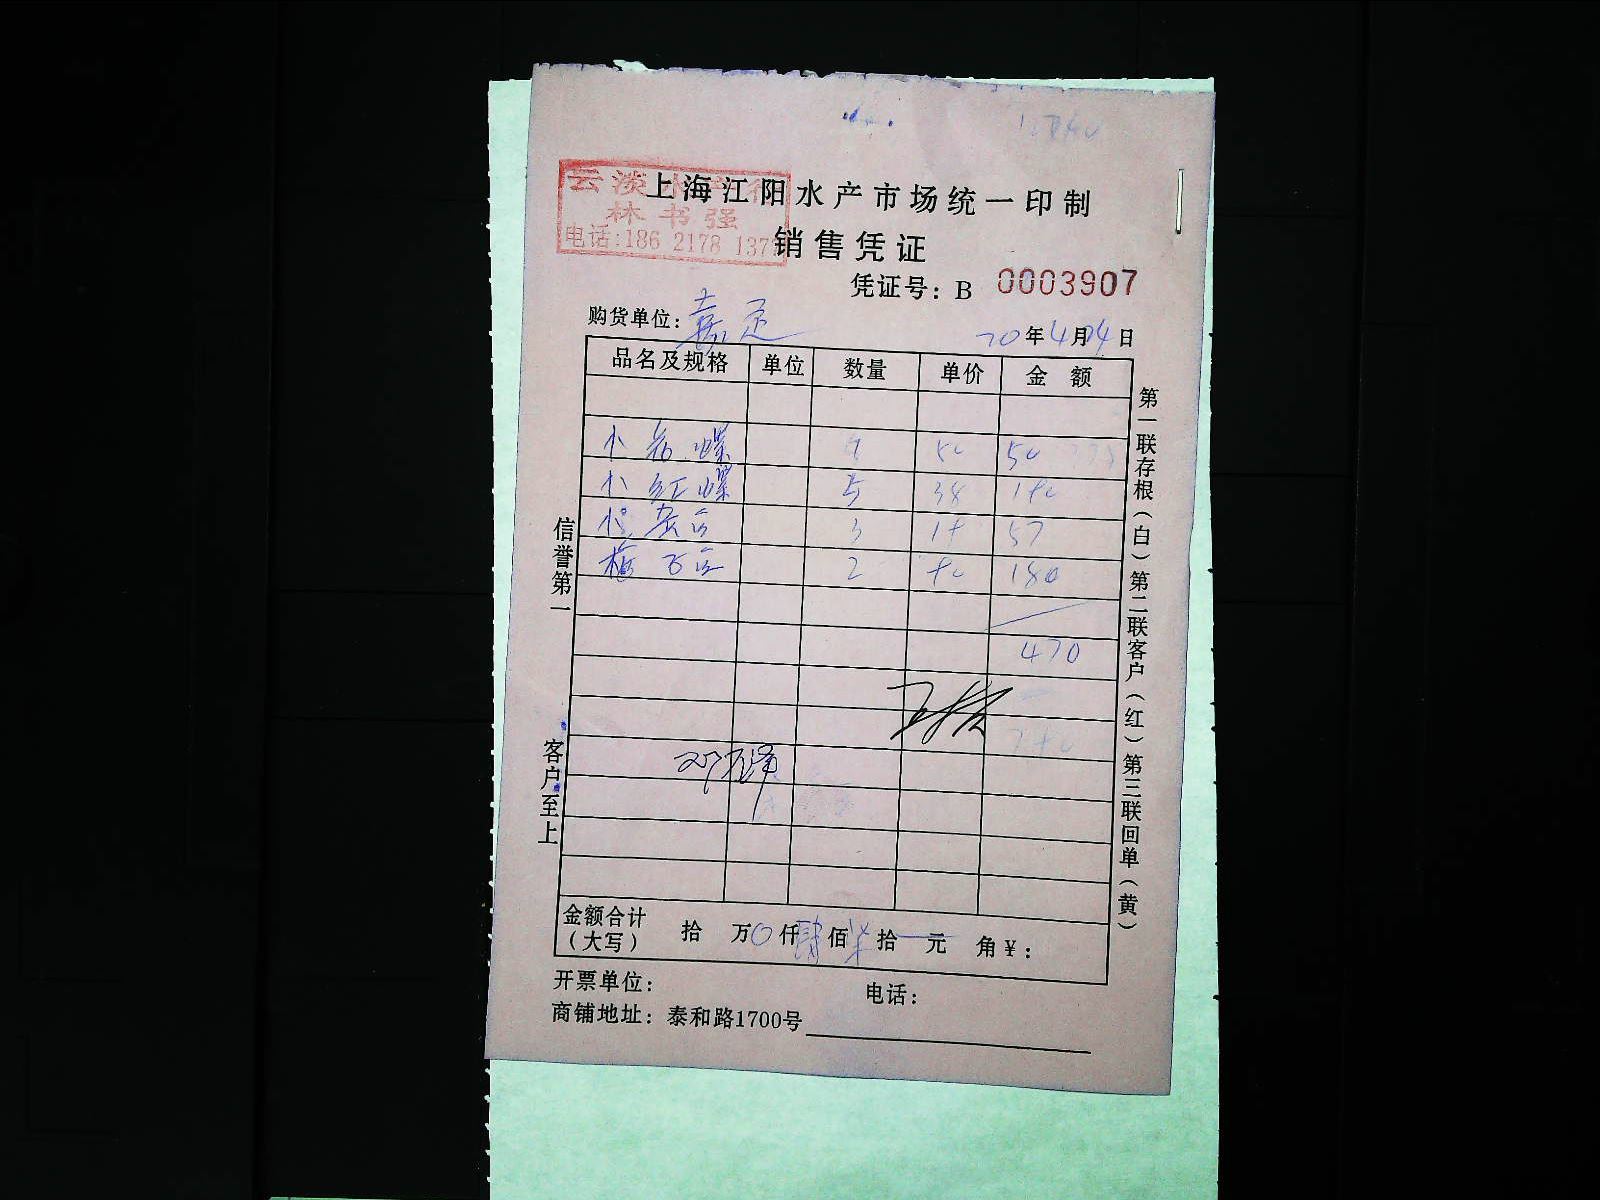 云淡水产行
林书强
电话:186 2178 137
上海江阳水产市场统一印制
销售凭证
凭证号: B 0003907
购货单位: 嘉定
20年4月24日
品名及规格 单位 数量 单价 金额
小 螺 50 50
小红螺 5 38 190
3 19 57
2 90 180
470
金额合计(大写) 拾 万 0 仟 肆 佰 柒 拾 元 角 ¥:
开票单位: 电话:
商铺地址: 泰和路1700号
信誉第一
客户至上
第一联存根(白)第二联客户(红)第三联回单(黄)